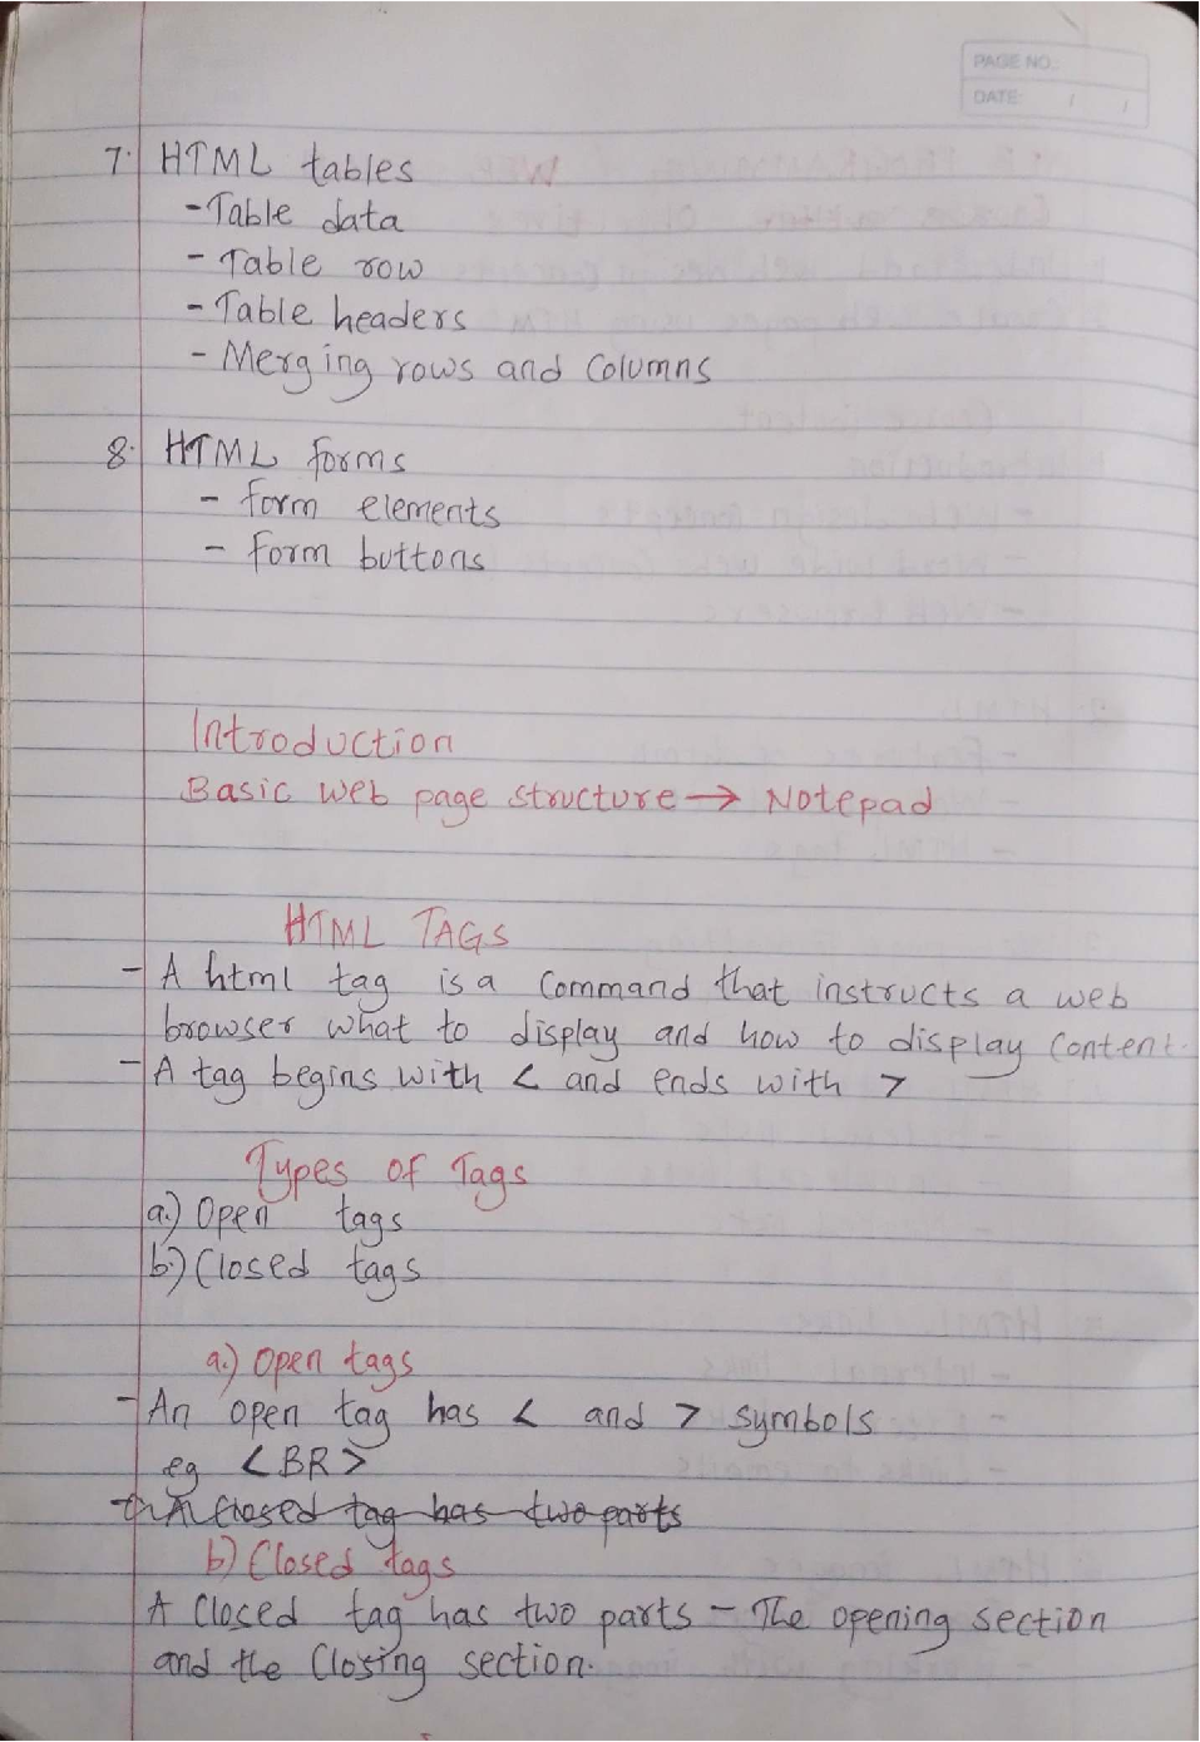 PAGE NO.:
DATE: / /
7. HTML tables
- Table data
- Table row
- Table headers
- Merging rows and Columns
8. HTML forms
- form elements
- Form buttons
Introduction
Basic web page structure → Notepad
HTML TAGS
- A html tag is a Command that instructs a web
browser what to display and how to display Content.
- A tag begins with < and ends with >
Types of Tags
a.) Open tags
b.) Closed tags
a.) Open tags
- An open tag has < and > symbols
eg <BR>
A Closed tag has two parts
b) Closed tags
A Closed tag has two parts - The opening section
and the Closing section.